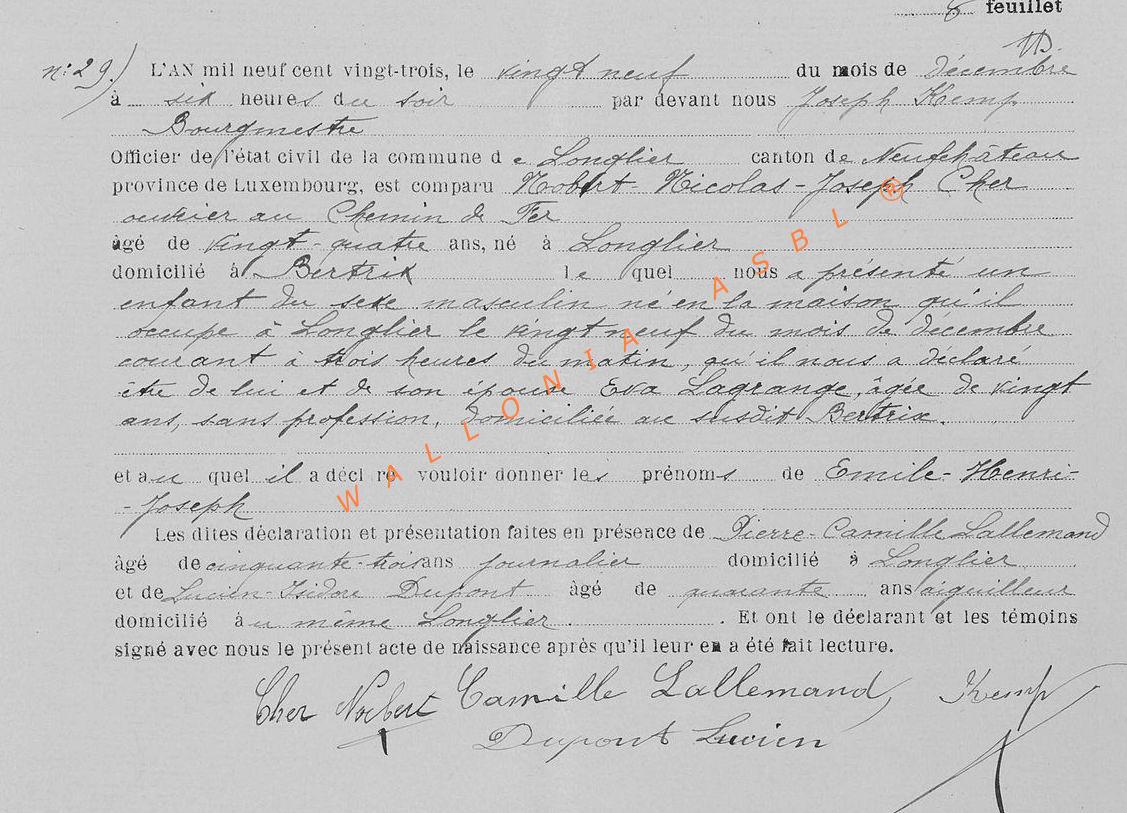 8 feuillet
n: 29) L'AN mil neuf cent vingt-trois, le vingt neuf du mois de décembre
à six heures du soir par devant nous Joseph Kemp
Bourgmestre
Officier de l'état civil de la commune de Longlier canton de Neufchâteau
province de Luxembourg, est comparu Norbert-Nicolas-Joseph Cher
ouvrier au Chemin de Fer
âgé de vingt-quatre ans, né à Longlier
domicilié à Bertrix le quel nous a présenté un
enfant du sexe masculin né en la maison qu'il
occupe à Longlier le vingt neuf du mois de décembre
courant à trois heures du matin, qu'il nous a déclaré
être de lui et de son épouse Eva Lagrange, âgée de vingt
ans, sans profession, domiciliée au susdit Bertrix.
et au quel il a décl ré vouloir donner les prénoms de Emile-Henri-
-Joseph
Les dites déclaration et présentation faites en présence de Pierre-Camille Lallemand
âgé de cinquante-trois ans journalier domicilié à Longlier
et de Lucien-Isidore Dupont âgé de quarante ans aiguilleur
domicilié au même Longlier. Et ont le déclarant et les témoins
signé avec nous le présent acte de naissance après qu'il leur en a été fait lecture.
Cher Norbert Camille Lallemand Kemp
Dupont Lucien
WALLONIA ASBL ®